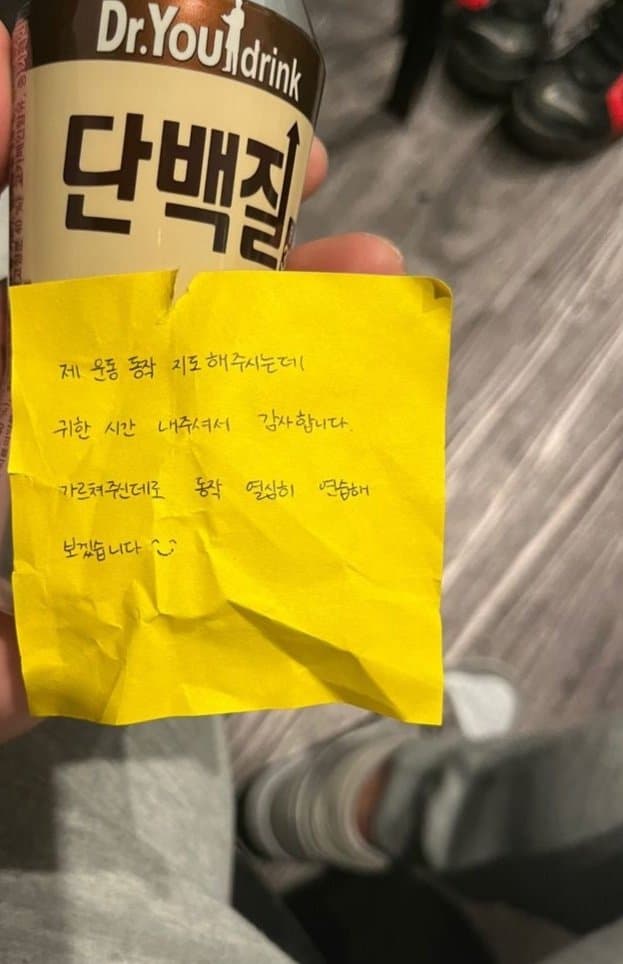 Dr.You drink
단백질
제 운동 동작 지도해주시는데
귀한 시간 내주셔서 감사합니다.
가르쳐주신데로 동작 열심히 연습해
보겠습니다